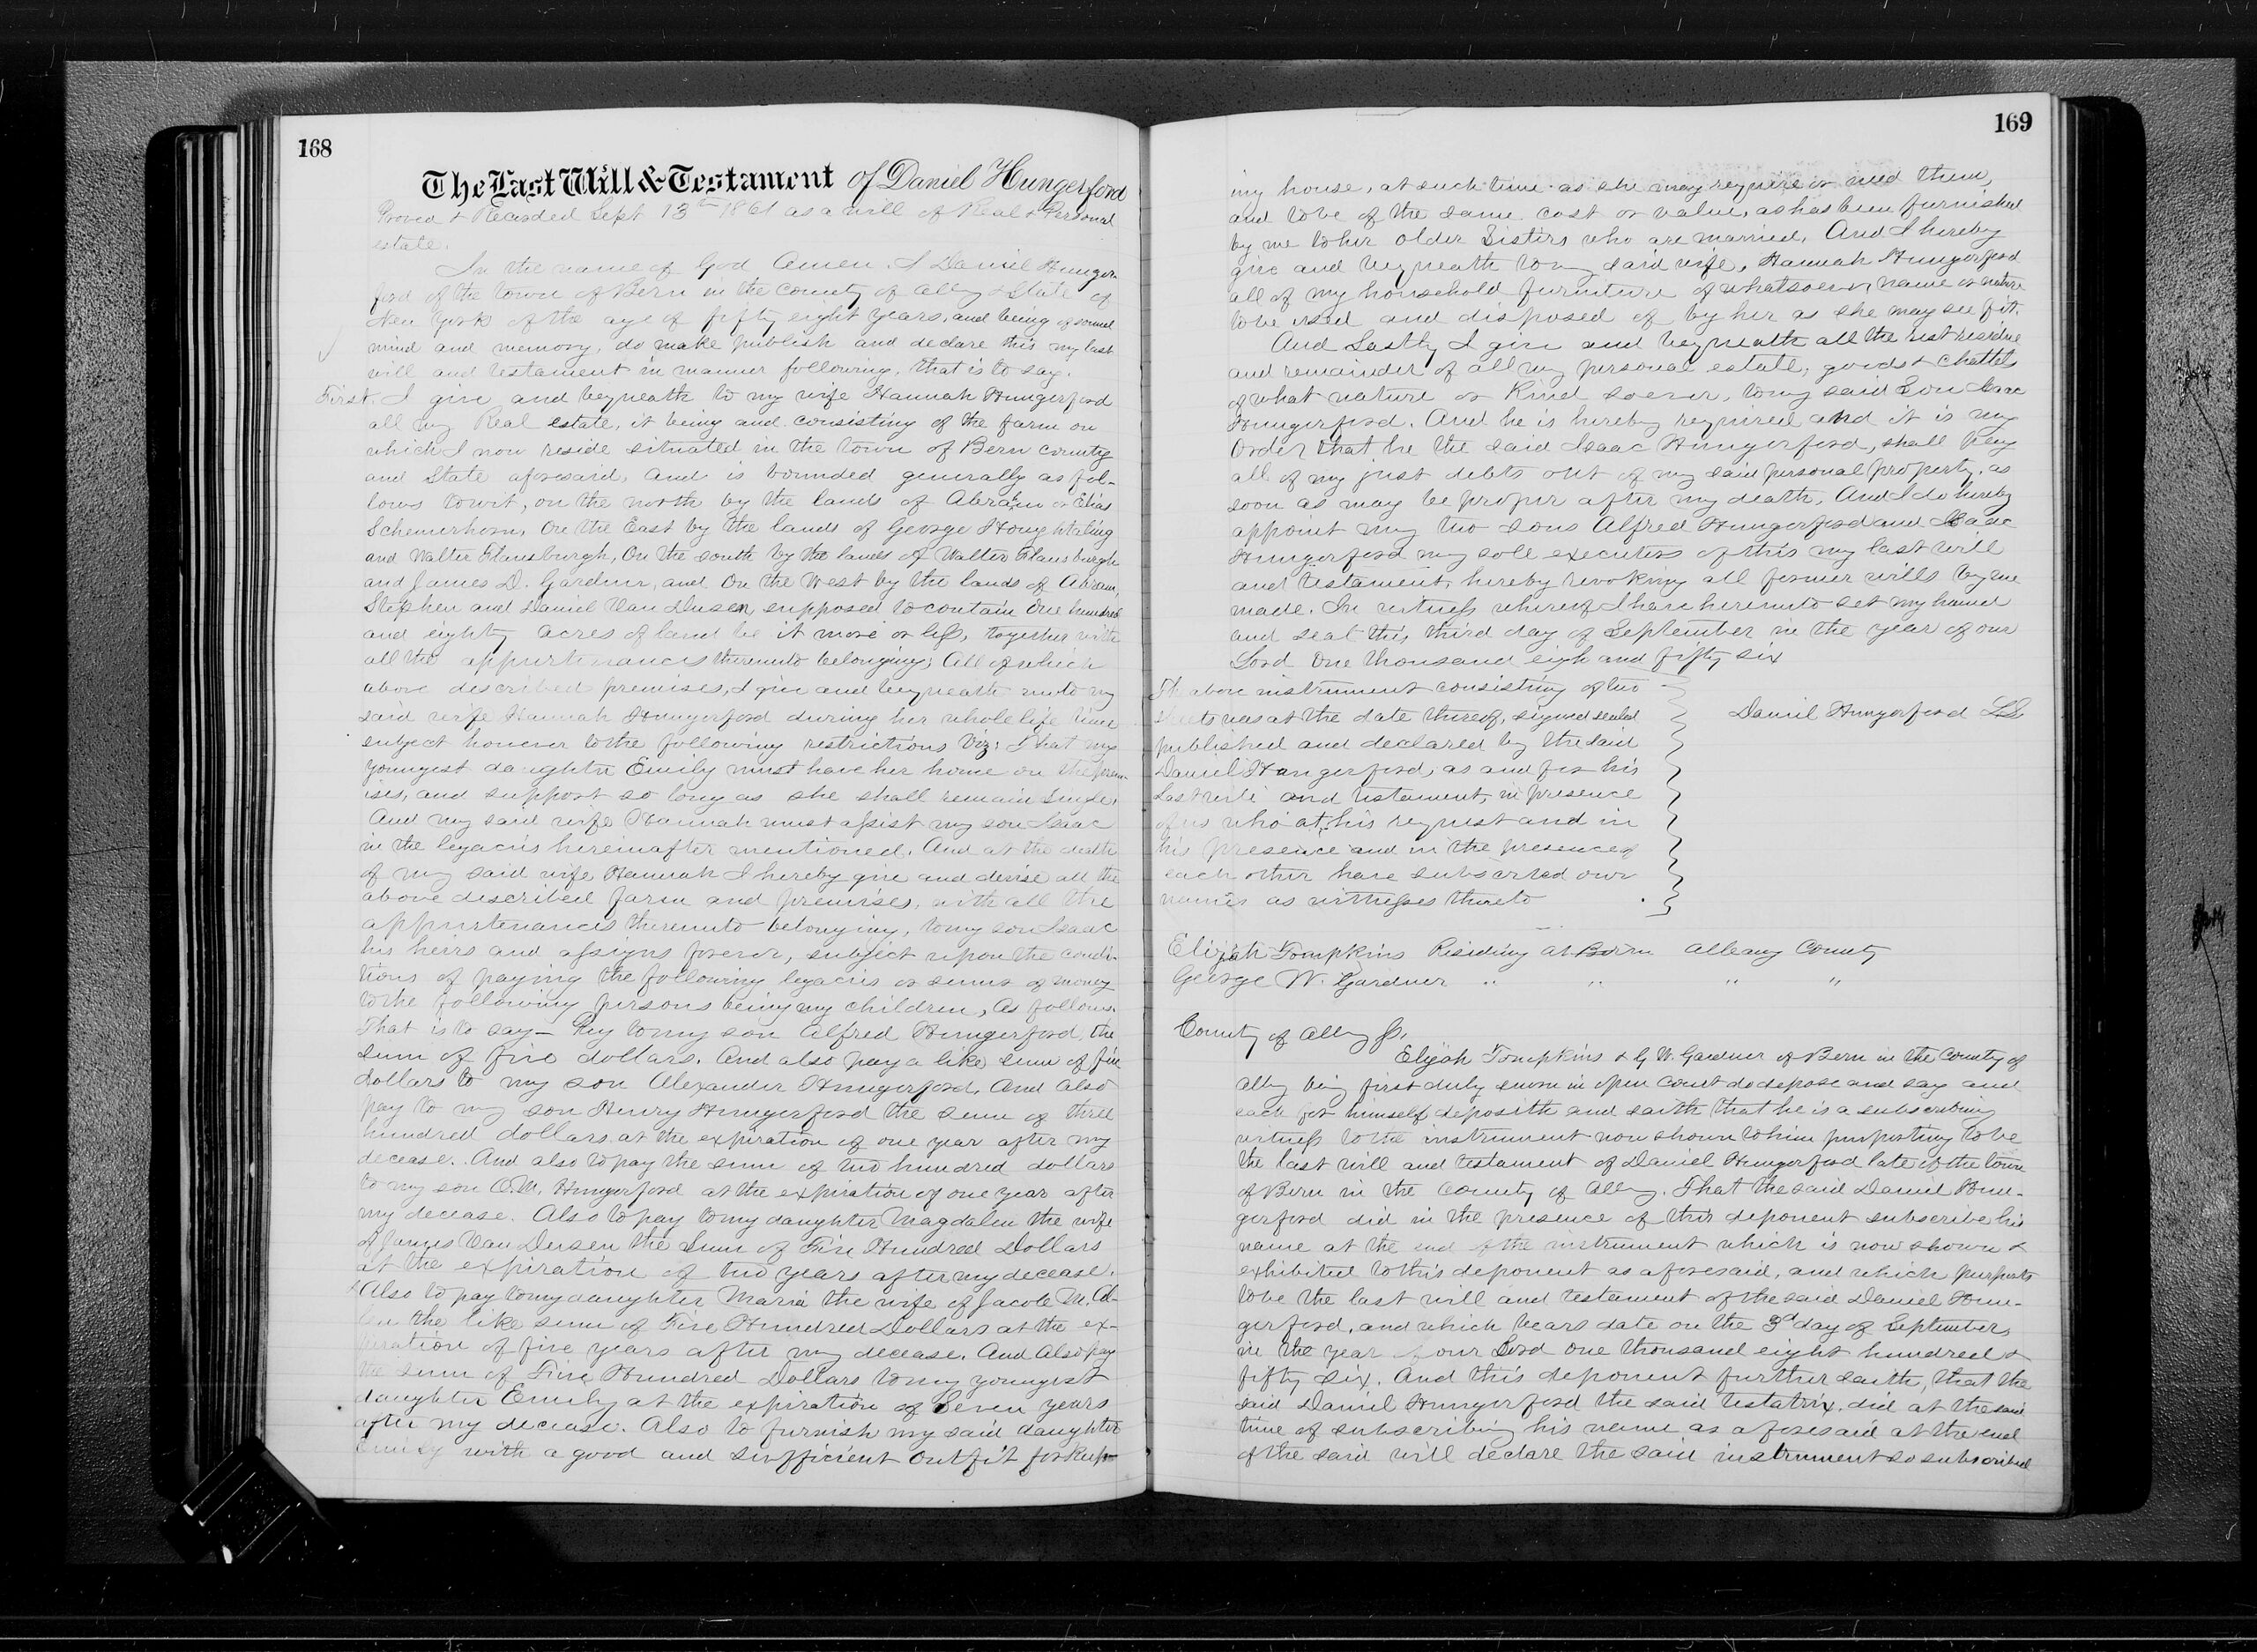 168
The Last Will & Testament of Daniel Hungerford
Proved & Recorded Sept 13th 1861 as a will of Real & Personal
estate.
In the name of God Amen. I Daniel Hunger-
ford of the town of Bern in the County of Alby & State of
New York of the age of fifty eight years, and being of sound
mind and memory, do make publish and declare this my last
will and testament in manner following, that is to say.
First I give and bequeath to my wife Hannah Hungerford
all my Real estate, it being and consisting of the farm on
which I now reside situated in the town of Bern county
and State aforesaid, and is bounded generally as fol-
lows towit, on the north by the lands of Abram or Elias
Schemerhorn, On the East by the lands of George Houghtaling
and Walter Flansburgh, On the south by the lands of Walter Flansburgh
and James D. Gardner, and On the West by the lands of Abram,
Stephen and Daniel Van Dusen, supposed to contain One hundred
and eighty acres of land be it more or less, together with
all the appurtenances thereunto belonging; All of which
above described premises, I give and bequeath unto my
said wife Hannah Hungerford during her whole life time
subject however to the following restrictions Viz: That my
youngest daughter Emily must have her home on the prem-
ises, and support so long as she shall remain single,
And my said wife Hannah must assist my son Isaac
in the legacies hereinafter mentioned. And at the death
of my said wife Hannah I hereby give and devise all the
above described farm and premises, with all the
appurtenances thereunto belonging, to my son Isaac
his heirs and assigns forever, subject upon the condi-
tions of paying the following legacies or sums of money
to the following persons being my children, As follows.
That is to say— Pay to my son Alfred Hungerford, the
sum of five dollars. And also pay a like sum of five
dollars to my son Alexander Hungerford. And also
pay to my son Henry Hungerford the sum of three
hundred dollars at the expiration of one year after my
decease. And also to pay the sum of two hundred dollars
to my son O.M. Hungerford at the expiration of one year after
my decease. Also to pay to my daughter Magdalen the wife
of James Van Deusen the Sum of Five Hundred Dollars
at the expiration of two years after my decease.
Also to pay to my daughter Maria the wife of Jacob M. Al-
len the like sum of Five Hundred Dollars at the ex-
piration of five years after my decease. And Also pay
the sum of Five Hundred Dollars to my youngest
daughter Emily at the expiration of Seven years
after my decease. Also to furnish my said daughter
Emily with a good and sufficient outfit for keep-
169
ing house, at such time as she may require or need them,
and to be of the same cost or value, as has been furnished
by me to her older Sisters who are married. And I hereby
give and bequeath to my said wife, Hannah Hungerford
all of my household furniture of whatsoever name or nature
to be used and disposed of by her as she may see fit.
And Lastly I give and bequeath all the rest residue
and remainder of all my personal estate, goods & chattels
of what nature or Kind soever, to my said Son Isaac
Hungerford. And he is hereby required and it is my
Order that he the said Isaac Hungerford, shall pay
all of my just debts out of my said personal property, as
soon as may be proper after my death. And I do hereby
appoint my two sons Alfred Hungerford and Isaac
Hungerford my sole executors of this my last will
and testament, hereby revoking all former wills by me
made. In witness whereof I have hereunto set my hand
and seal this third day of September in the year of our
Lord One thousand eigh and fifty six
Th above instrument consisting of two
sheets was at the date thereof, signed sealed
Daniel Hungerford LS
published and declared by the said
Daniel Hungerford, as and for his
last will and testament, in presence
of us who at his request and in
his presence and in the presence of
each other have subscribed our
names as witnesses thereto
Elijah Tompkins Residing at Bern Albany County
George W. Gardner " " " "
County of Alby ss.
Elijah Tompkins & G W. Gardner of Bern in the County of
Alby being first duly sworn in open Court do depose and say and
each for himself deposith and saith that he is a subscribing
witness to the instrument now shown to him purporting to be
the last will and testament of Daniel Hungerford late of the town
of Bern in the County of Alby. That the said Daniel Hun-
gerford did in the presence of this deponent subscribe his
name at the end of the instrument which is now shown &
exhibited to this deponent as aforesaid, and which purports
to be the last will and testament of the said Daniel Hun-
gerford, and which bears date on the 3d day of September
in the year of our Lord one thousand eight hundred &
fifty six. And this deponent further saith, that the
said Daniel Hungerford the said testatrix, did at the said
time of subscribing his name as aforesaid at the end
of the said will declare the said instrument so subscribed